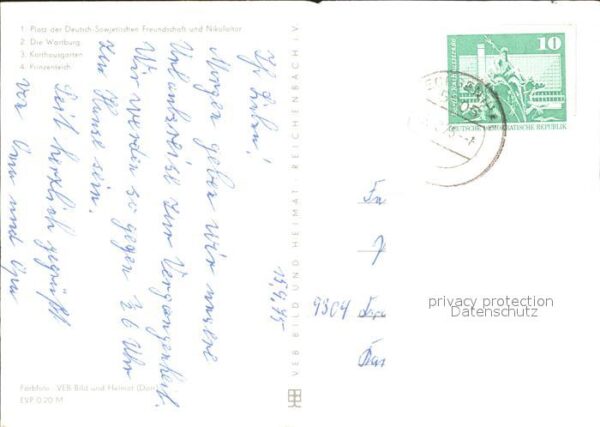 1. Platz der Deutsch-Sowjetischen Freundschaft und Nikolaitor
2. Die Wartburg
3. Karthausgarten
4. Prinzenteich
Ihr Lieben!
Morgen geben wir unsere
Urlaubsreise zur Vergangenheit.
Wir werden so gegen ½ 6 Uhr
zu Hause sein.
Seit herzlich gegrüßt
von Oma und Opa
15.9.75
VEB BILD UND HEIMAT REICHENBACH i. V.
Farbfoto: VEB Bild und Heimat
EVP 0,20 M
10
DEUTSCHE DEMOKRATISCHE REPUBLIK
9304
privacy protection
Datenschutz